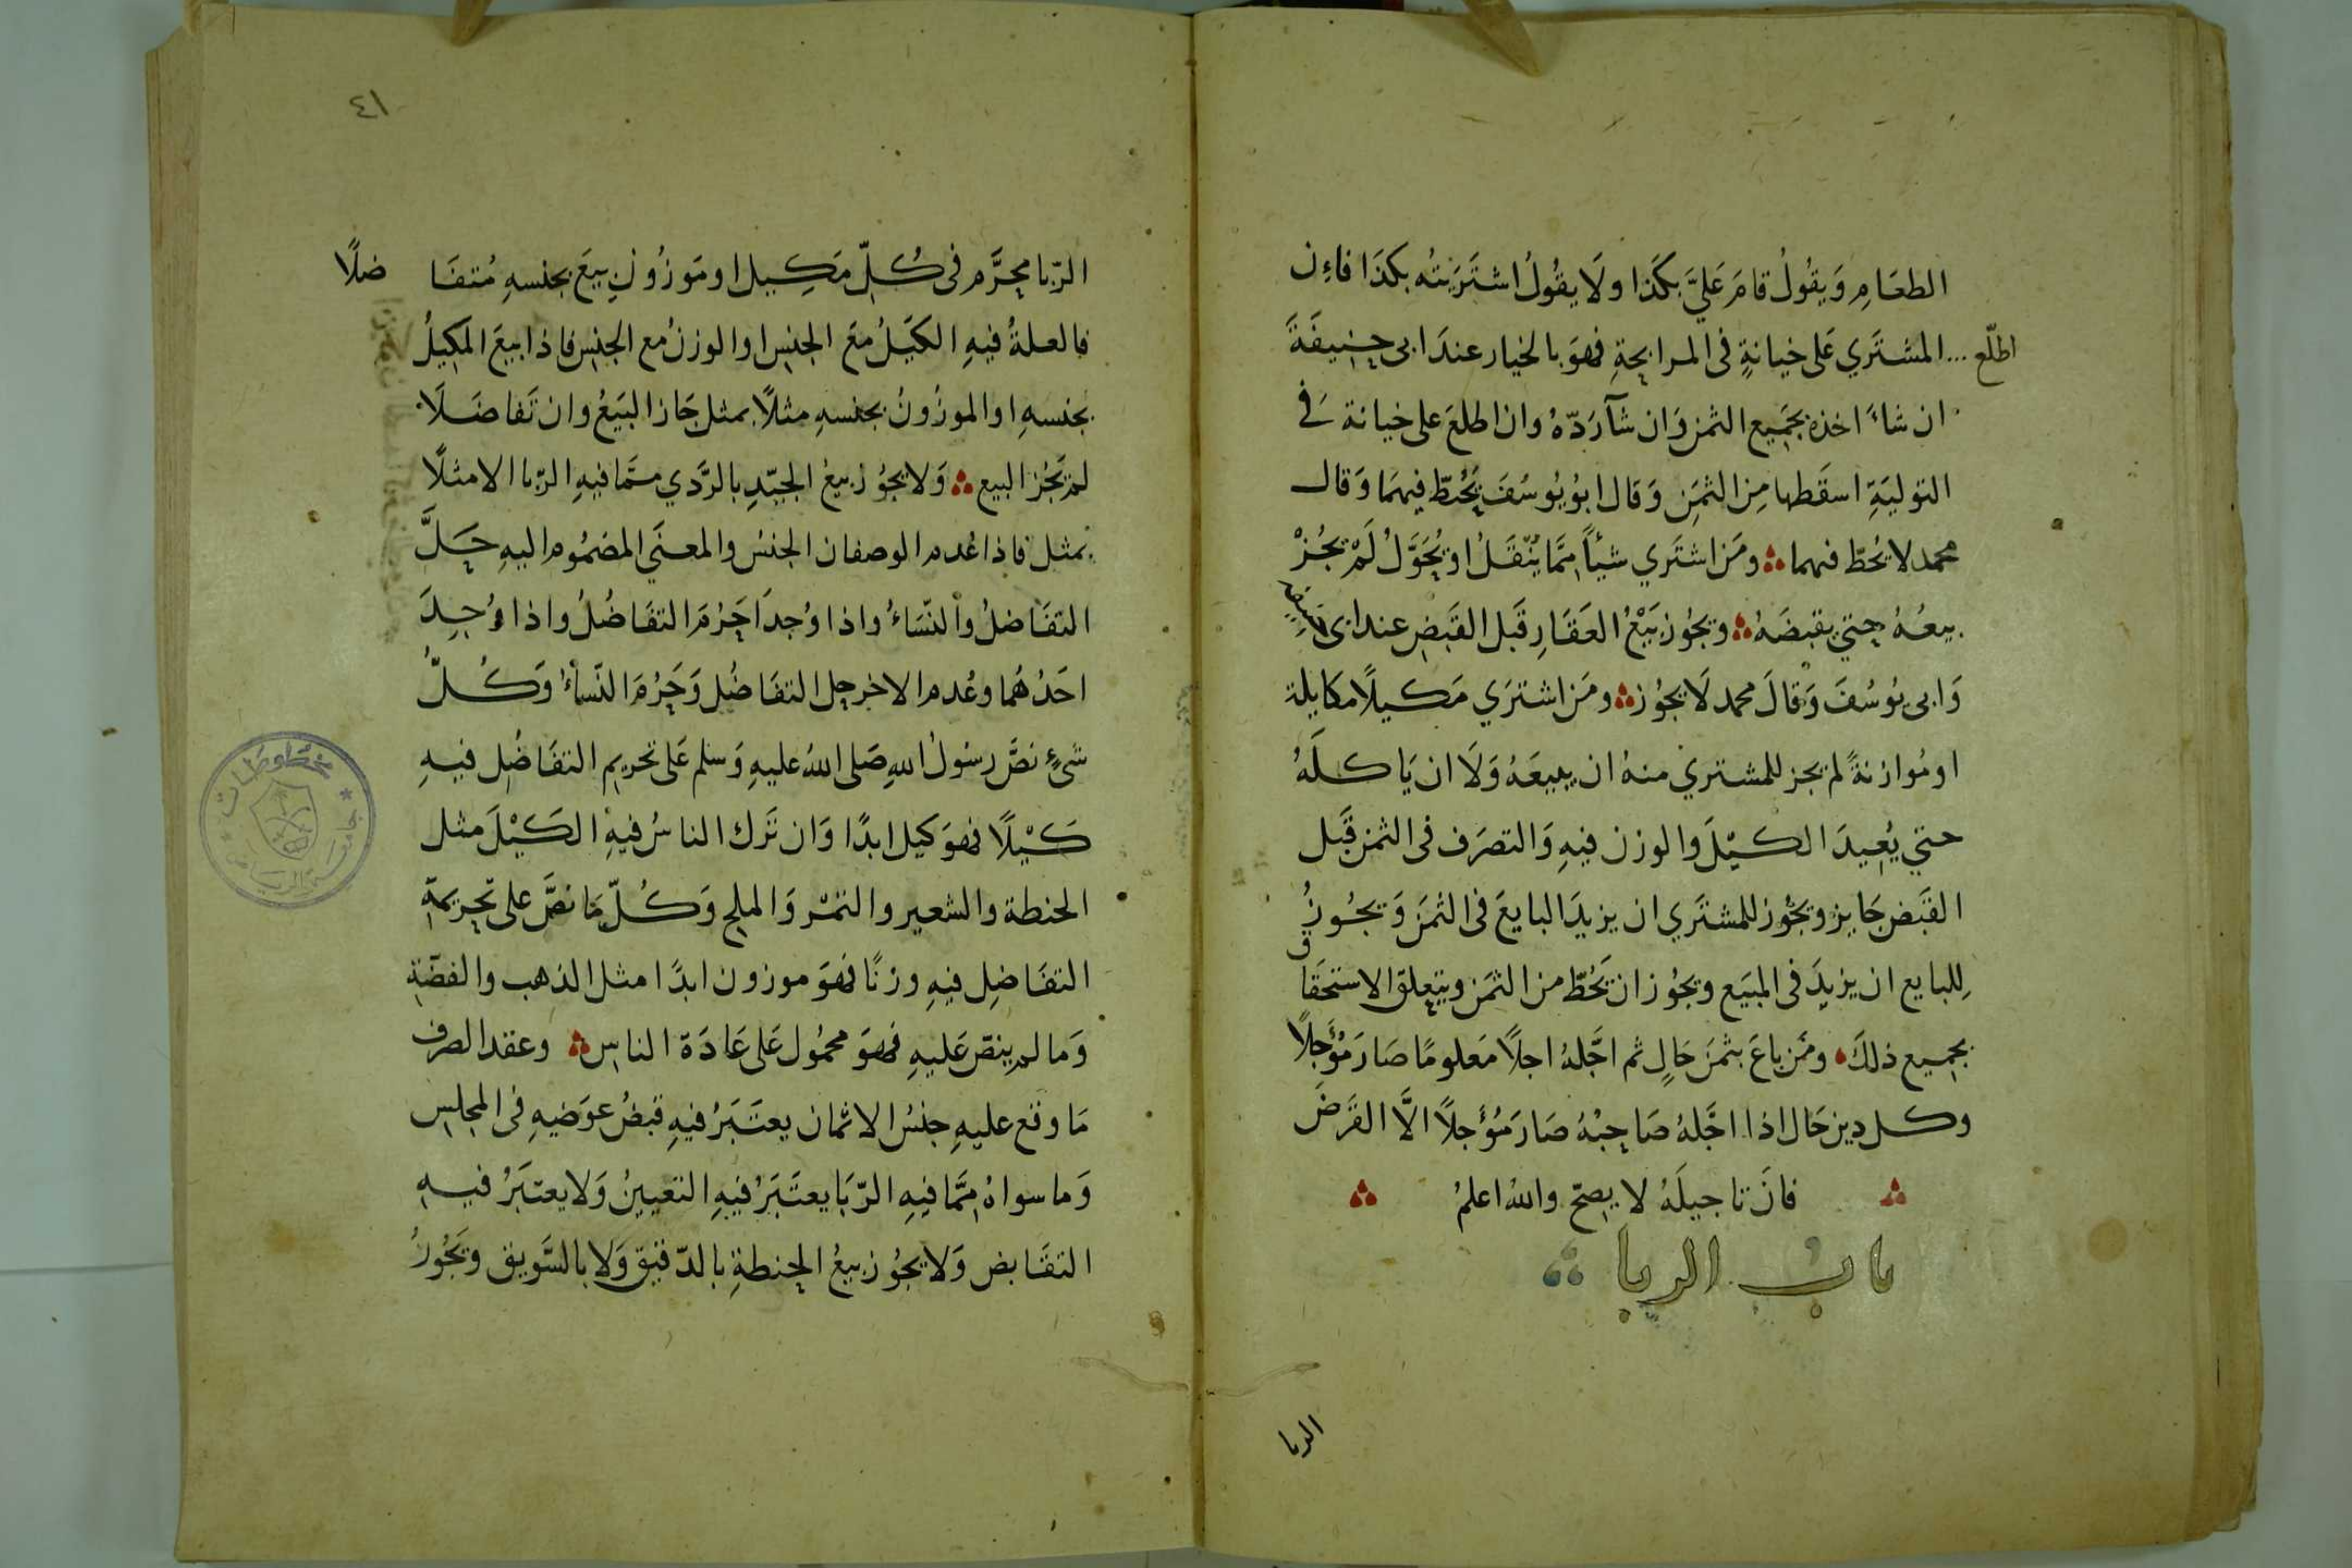 الطعَامِ وَيقُولُ قامَ عَليَّ بكذَا ولَا يقُولُ اشترَيتُه بكذَا فاءِن
اطلّع ... المشترَي عَلى خيانةٍ فى المرابحةِ فهوَ بالخيار عندَ ابى حنيفَةَ
ان شاءَ اخذه بجَميع الثمن وَان شآ رَدّهُ وان اطلعَ على خيانة فى
التوليَةِ اسقَطها مِن الثمَنِ وَقال ابُو يُوسُفَ يَحُطّ فيهمَا وَقال
محمد لا يَحُطّ فيهما ومَن اشترَي شيئاً مِمَّا يُنقَلُ او يُحَوَّلُ لَمْ يجُزْ
بيعُهُ حتي يقبضَهُ ويجُوز بَيْعُ العَقَارِ قَبل القَبضِ عند ابى حنيفه
وَابى يوسُفَ وَقالَ محمد لَا يجُوز ومَن اشترَي مَكيلًا مكايلة
او مُوازنةً لم يجز للمشتري منهُ ان يبيعَهُ وَلَا ان يَاكلَهُ
حتي يُعِيدَ الكيْلَ والوزن فيهِ وَالتصرَف فى الثمن قَبل
القَبض جَايز ويجُوز للمشترَي ان يزيدَ البايعَ فى الثمَن وَيجُوزُ
لِلبايع ان يزيدَ فى المبَيع ويجُوز ان يَحُطّ من الثمَن ويتعلق الاستحقَاق
بجميع ذلكَ ومَن باعَ بثمَن حَالٍ ثم اجَّلهُ اجلًا مَعلومًا صَارَ مُؤَجلًا
وكل دين حَال اذا اجَّلهُ صَاحِبُهُ صَارَ مُؤَجلًا الَّا القَرضَ
فانَ تاجيلَهُ لا يصحّ واللهُ اعلمُ
باب الربا
الربا
٤١
الرّبا محرَّم فى كُلّ مَكِيل او مَوزُونٍ بيعَ بجنسهِ مُتفَا ضلًا
فالعلةُ فيهِ الكَيَلُ معَ الجنِس او الوزنُ مع الجنِس فاذا بيعَ المكيلُ
بجنسهِ او الموزُونُ بجنسهِ مثلًا بمثل جَاز البَيَعُ وان تَفاضَلَا
لم يَجُز البيع وَلا يجُوز بيعُ الجيّدِ بالرَّدي ممَّا فيهِ الرّبا الا مثلًا
بمثل فاذا عُدم الوصفان الجنسُ والمعنَي المضمُوم اليهِ حَلَّ
التفَاضلُ والنّسَاءُ واذا وُجدَا حَرُمَ التفَاضُلُ واذا وُجِدَ
احَدُهُما وعُدم الاخر حل التفَاضُل وَحَرُمَ النّساءُ وَكُلُّ
شىْءٍ نصَّ رسُولُ اللهِ صَلى اللهُ عليهِ وَسَلم عَلى تحريم التفَاضُل فيهِ
كَيْلًا فهوَ كيل ابدًا وَان تَرك الناسُ فيهِ الكَيْلَ مثل
الحنطة والشعير والتمْر وَالملح وَكُلّ مَا نصَّ على تحريمَةِ
التفَاضِل فيهِ وزنًا فهوَ موزون ابدًا مثل الذهب والفضّةِ
وَما لم ينصّ عَليهِ فهوَ محمُول عَلى عَادَة الناس وعقد الصرف
مَا وقع عليهِ جنسُ الاثمان يعتَبَرُ فيهِ قبضُ عوَضيهِ فى المجلس
وَما سواهُ مِمَّا فيهِ الرّبَا يعتَبَرُ فيهِ التعيينُ وَلا يعتبَرُ فيهِ
التقَابض وَلا يجُوز بيعُ الحِنطةِ بالدّقيق وَلا بالسَّويق ويَجُوزُ
مخطوطات